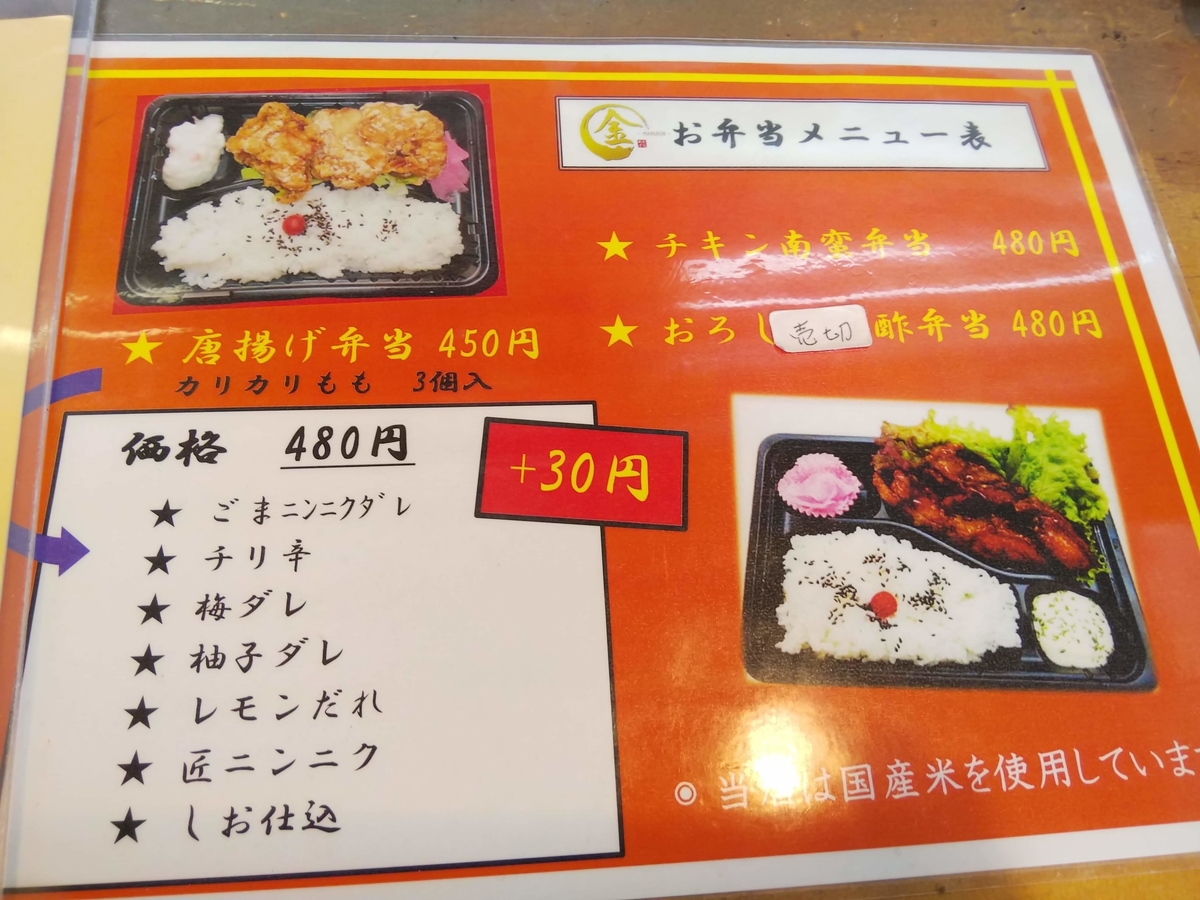 金 お弁当メニュー表
★ 唐揚げ弁当 450円
カリカリもも 3個入
★ チキン南蛮弁当 480円
★ おろし 売切 酢弁当 480円
価格 480円
+30円
★ ごまニンニクダレ
★ チリ辛
★ 梅ダレ
★ 柚子ダレ
★ レモンだれ
★ 匠ニンニク
★ しお仕込
◎ 当店は国産米を使用しています